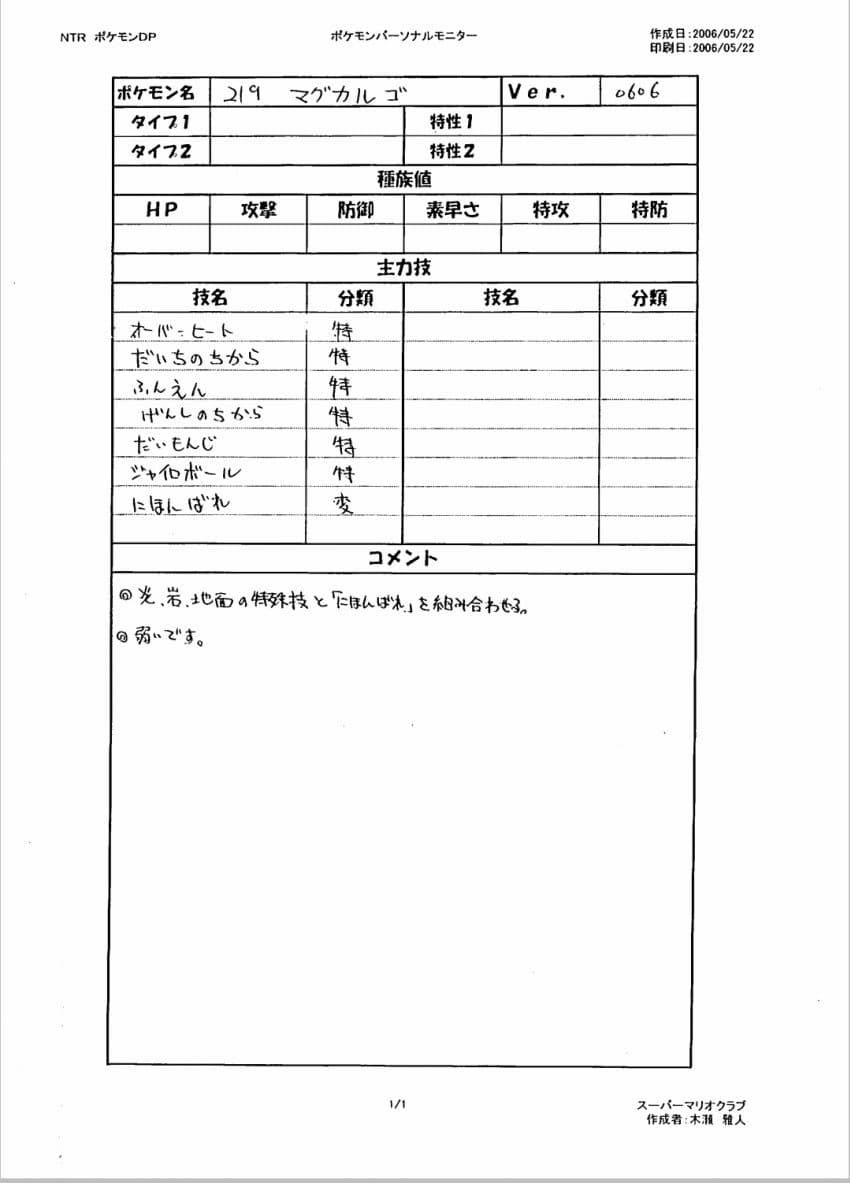 NTR ポケモンDP ポケモンパーソナルモニター 作成日:2006/05/22
印刷日:2006/05/22
ポケモン名 219 マグカルゴ Ver. 0606
タイプ1 特性1
タイプ2 特性2
種族値
HP 攻撃 防御 素早さ 特攻 特防
主力技
技名 分類 技名 分類
オーバーヒート 特
だいちのちから 特
ふんえん 特
げんしのちから 特
だいもんじ 特
ジャイロボール 特
にほんばれ 変
コメント
◎炎、岩、地面の特殊技と「にほんばれ」を組み合わせる。
◎弱いです。
1/1 スーパーマリオクラブ
作成者:木瀬 雅人